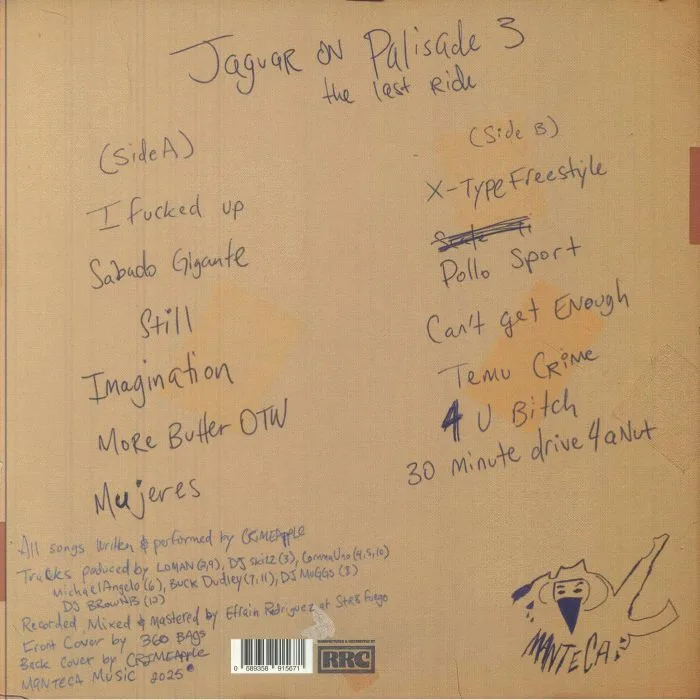 Jaguar on Palisade 3
the last Ride
(Side A)
I fucked up
Sabado Gigante
Still
Imagination
More Butter OTW
Mujeres
(Side B)
X-Type Freestyle
Pollo Sport
Can't get Enough
Temu Crime
4 U Bitch
30 minute drive 4 a Nut
All songs written & performed by CRIMEAPPLE
Tracks poduced by LOMAN (2,9), DJ Skizz (3), CommaUno (4,5,10)
Michael Angelo (6), Buck Dudley (7,11), DJ MUGGS (8)
DJ BROWN13 (12)
Recorded Mixed & mastered by Efrain Rodriguez at Str8 Fuego
Front Cover by 360 BAGS
Back Cover by CRIMEAPPLE
MANTECA Music 2025
0 689358 915671
MANUFACTURED & DISTRIBUTED BY
RRC
MANTECA